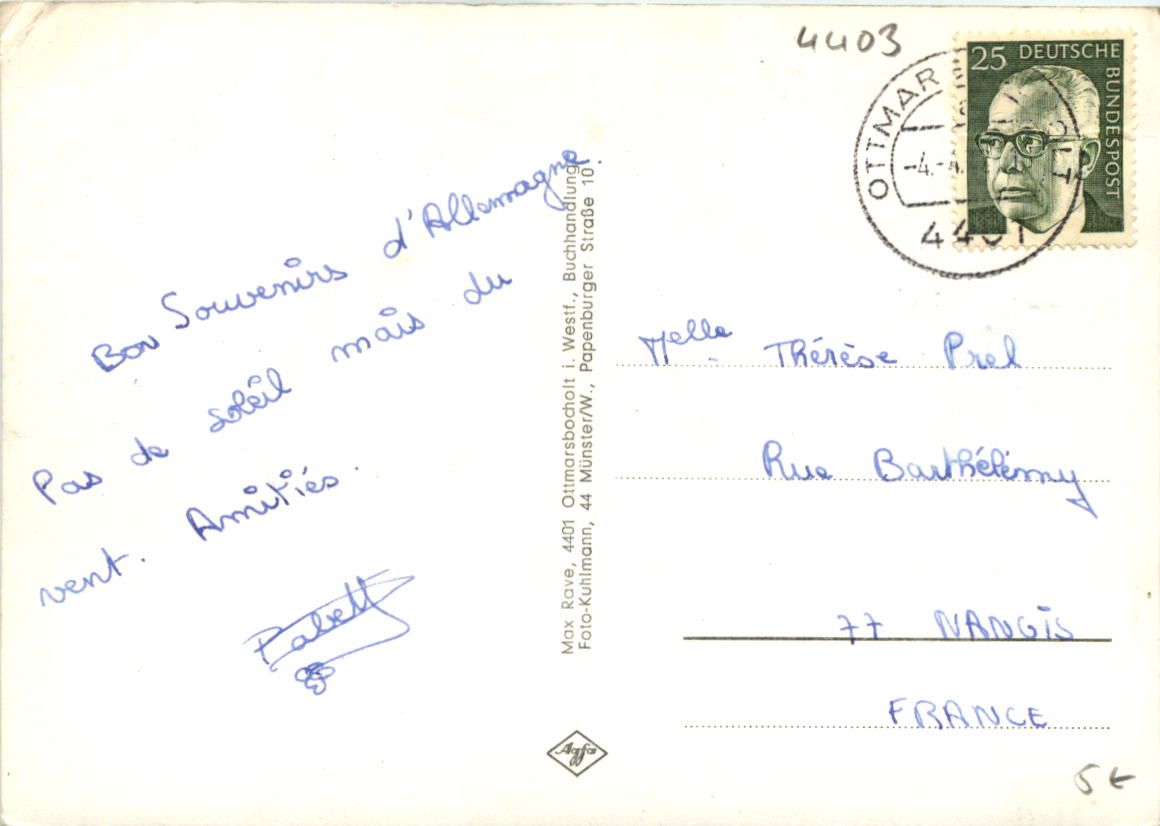 Bon Souvenirs d'Allemagne.
Pas de soleil mais du
vent. Amitiés.
Max Rave, 4401 Ottmarsbocholt i. Westf., Buchhandlung
Foto-Kuhlmann, 44 Münster/W., Papenburger Straße 10
Agfa
4403
25 DEUTSCHE BUNDESPOST
OTTMAR
-4.-4.
4401
Melle Thérèse Prel
Rue Barthélémy
77 NANGIS
FRANCE
5€